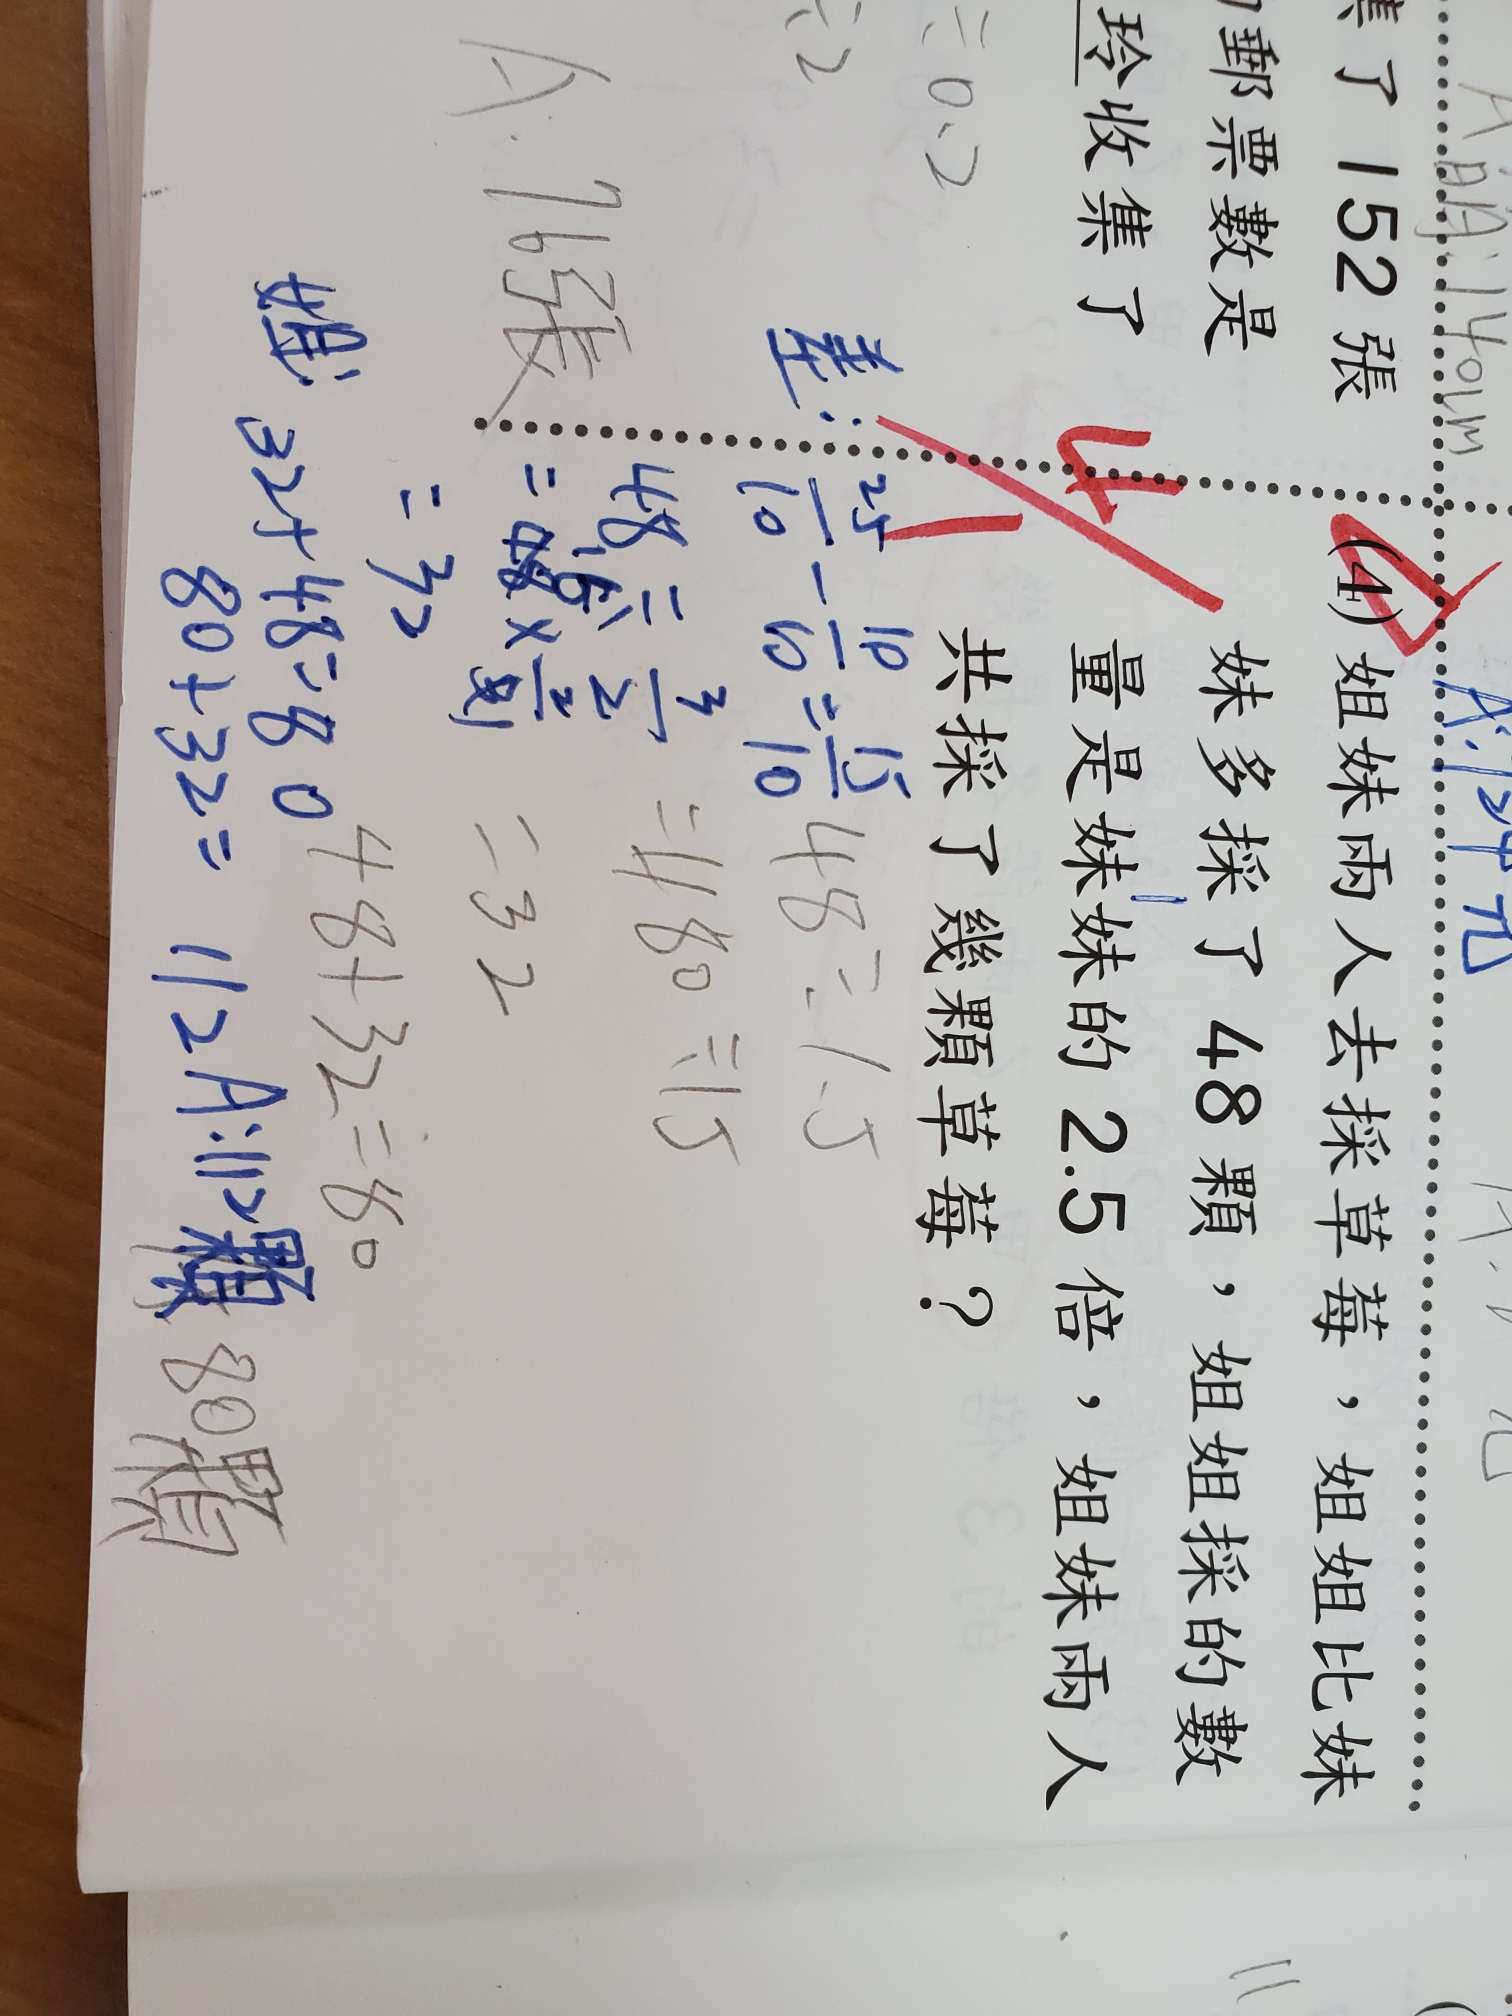 集了 152 張
郵票數是
玲收集了
÷0.2
÷2
A: 76張
A: 140cm
(4)姐妹兩人去採草莓，姐姐比妹
妹多採了 48 顆，姐姐採的數
量是妹妹的 2.5 倍，姐妹兩人
共採了幾顆草莓？
差: 25/10 - 10/10 = 15/10
48÷3/2
=32
48÷1.5
=480÷15
=32
48+32=80
32+48=80
80+32= 112 A:112顆
80顆